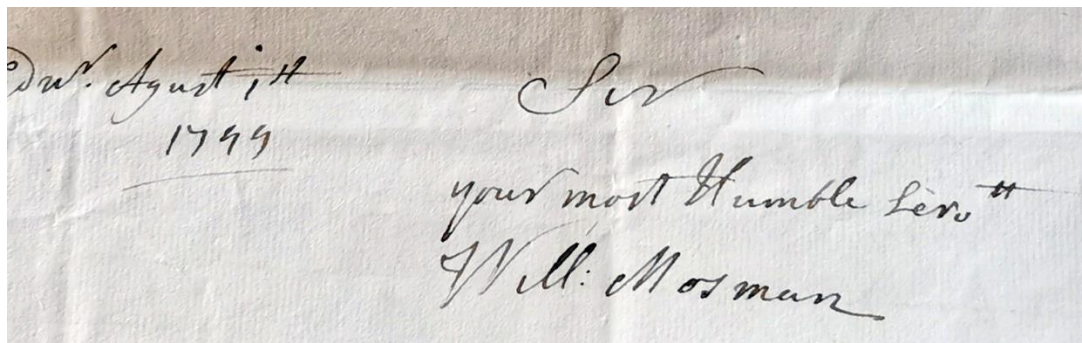 Edinr. Agust 1st
1749
Sir
your most Humble Servtt
Will: Mosman